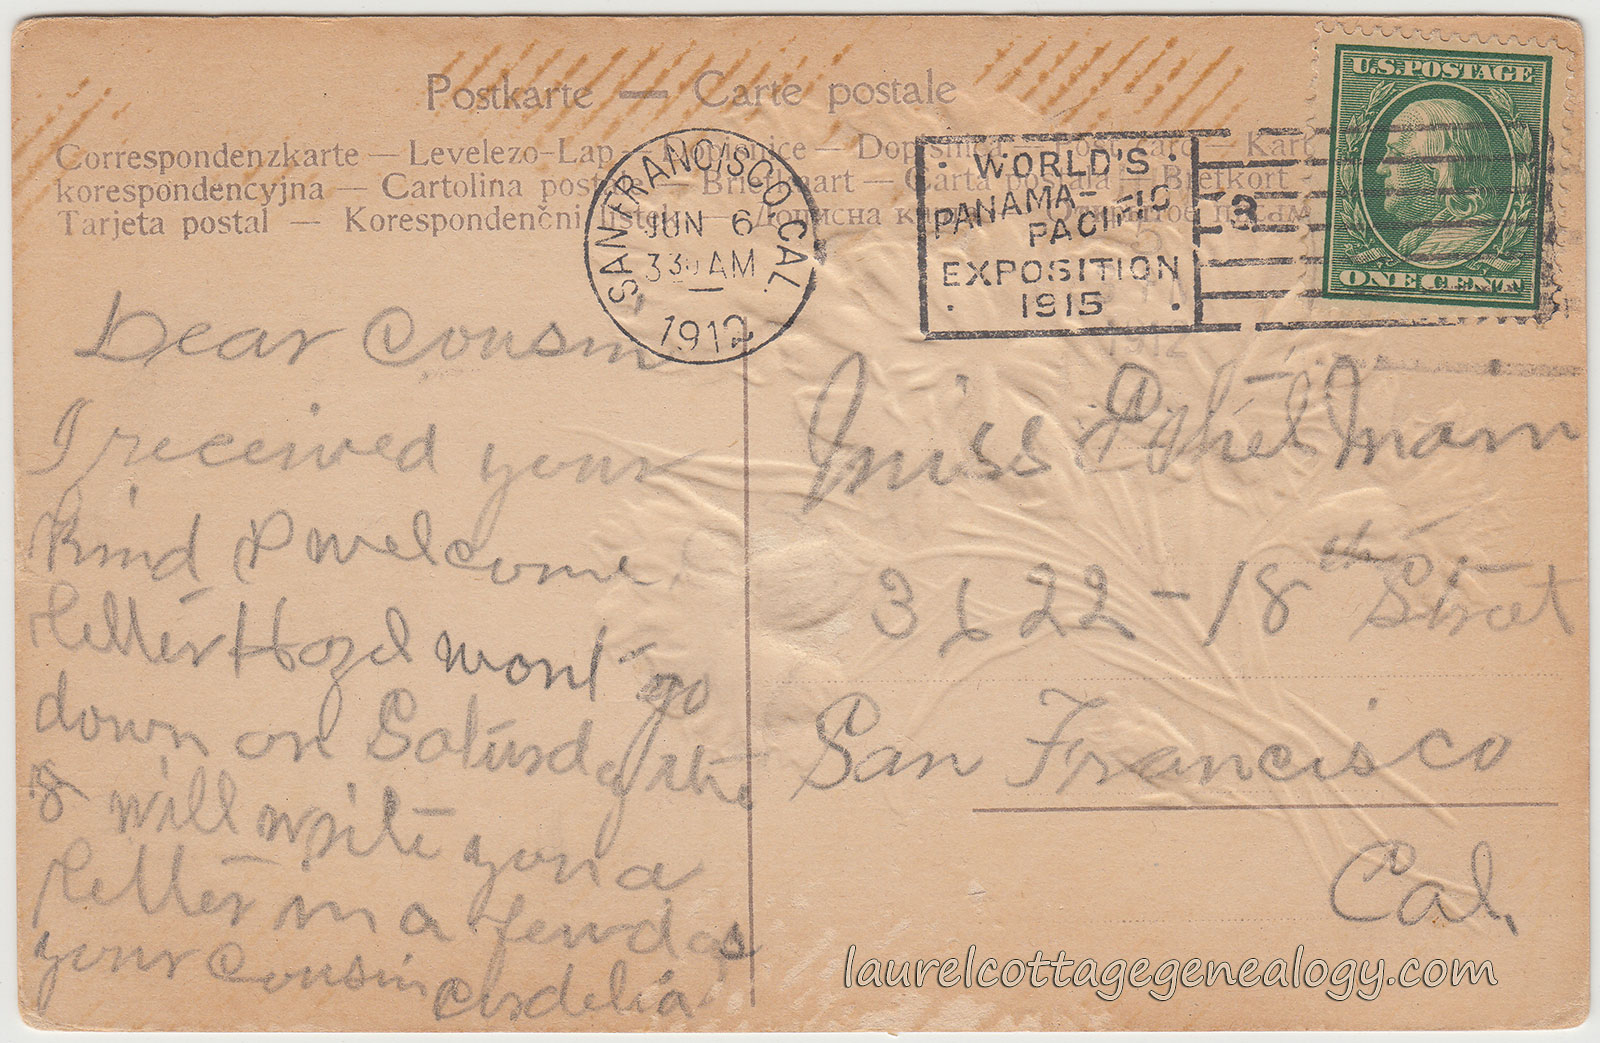 Postkarte — Carte postale
Correspondenzkarte — Levelezo-Lap — Dopisnice — Dopisnica — Post card — Kart
korespondencyjna — Cartolina postale — Briefkaart — Carta postala — Brefkort
Tarjeta postal — Korespondenčni listek —
SAN FRANCISCO, CAL.
JUN 6
3 30 AM
1912
WORLD'S
PANAMA-PACIFIC
EXPOSITION
1915
3
U.S. POSTAGE
ONE CENT
Dear Cousin
I received your
kind & welcome
letter Hazel wont go
down on Saturday the
8 will write you a
letter in a few das
your cousin Cordelia
Miss Ethel Main
3622 - 18th Street
San Francisco
Cal,
laurelcottagegenealogy.com